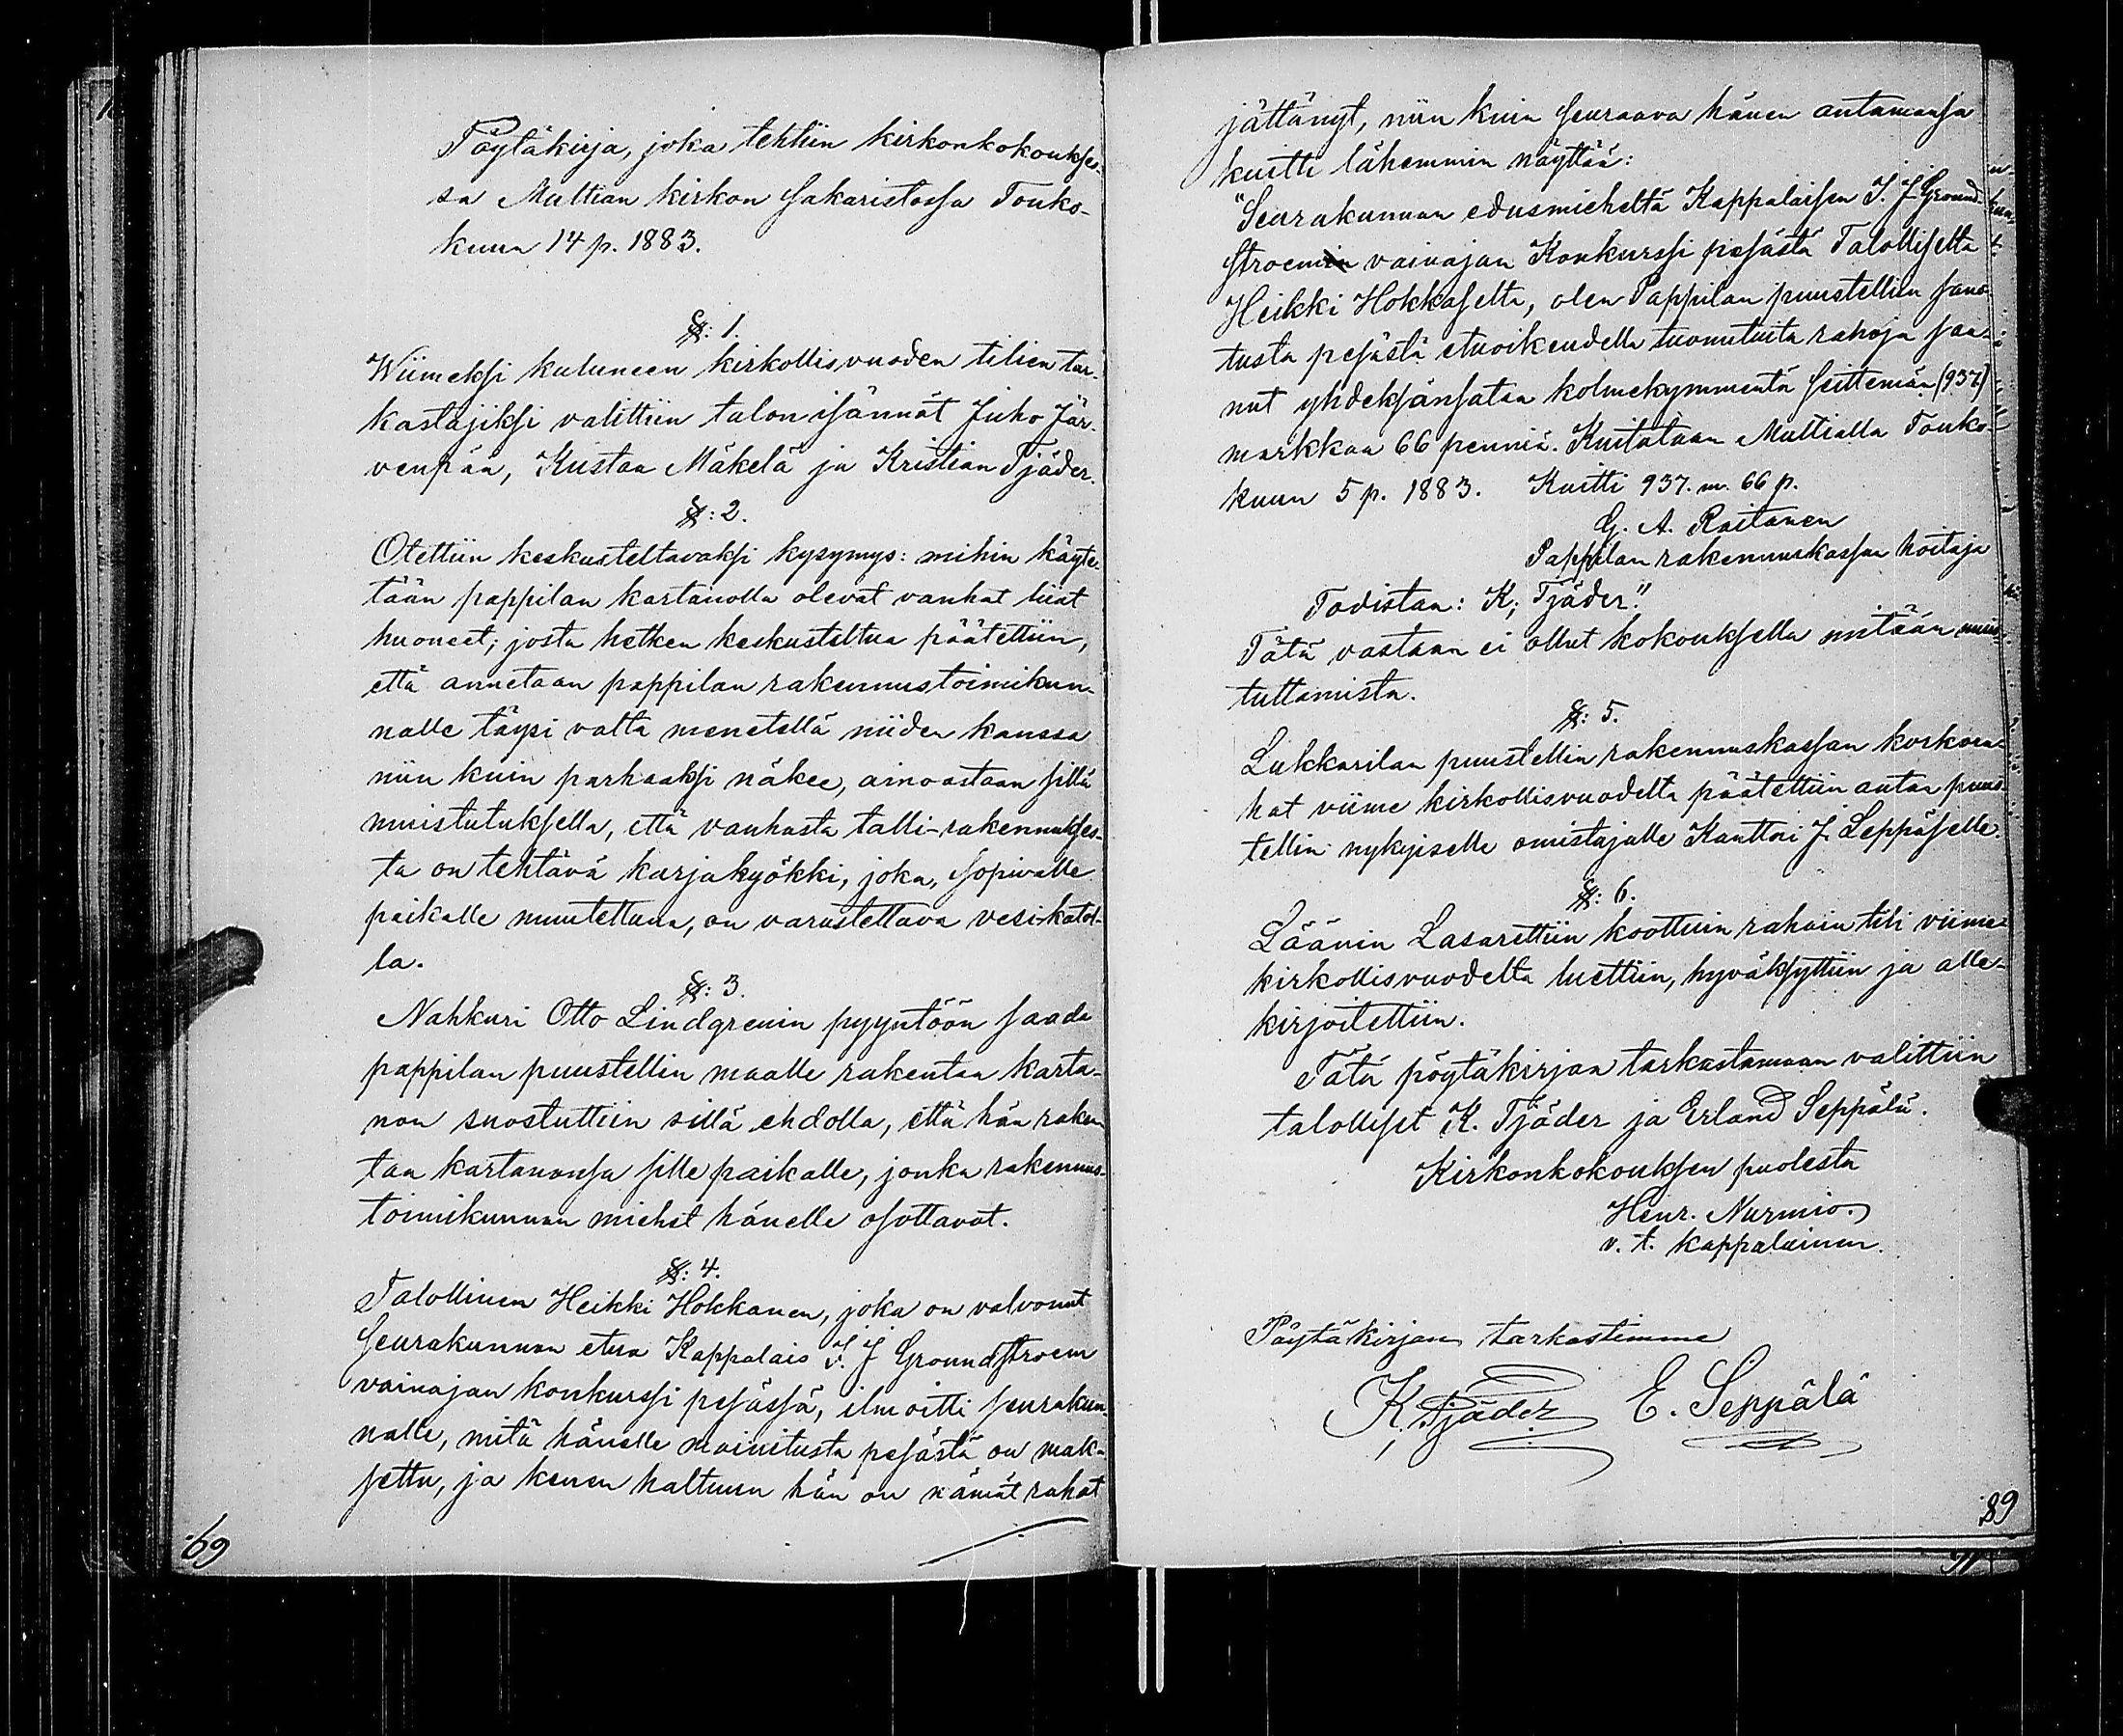 Pöytäkirja, joka tehtiin kirkonkokoukses-
sa Multian kirkon sakaristossa Touko-
kuun 14 p. 1883.
§: 1.
Wiimeksi kuluneen kirkollisvuoden tilien tar-
kastajiksi valittiin talon isännät Juho Jär-
venpää, Kustaa Mäkelä ja Kristian Tjäder.
§: 2.
Otettiin keskusteltavaksi kysymys: mihin käyte-
tään pappilan kartanolla olevat vanhat liiat
huoneet; josta hetken keskusteltua päätettiin,
että annetaan pappilan rakennustoimikun-
nalle täysi valta menetellä niiden kanssa
niin kuin parhaaksi näkee, ainoastaan sillä
muistutuksella, että vanhasta talli-rakennukses-
ta on tehtävä karjakyökki, joka, sopivalle
paikalle muutettuna, on varustettava vesi-katol-
la.
§: 3.
Nahkuri Otto Lindgrenin pyyntöön saada
pappilan puustellin maalle rakentaa karta-
non suostuttiin sillä ehdolla, että hän raken
taa kartanonsa sille paikalle, jonka rakennus-
toimikunnan miehet hänelle osottavat.
§: 4.
Talollinen Heikki Hokkanen, joka on valvonut
seurakunnan etua Kappalais I. J Groundstroem
vainajan konkurssi pesässä, ilmoitti seurakun-
nalle, mitä hänelle mainitusta pesästä on mak-
settu, ja kenen haltuun hän on nämät rahat
69
jättänyt, niin kuin seuraava hänen antamansa
kuitti lähemmin näyttää:
"Seurakunnan edusmieheltä Kappalaisen I. J. Ground-
stroemin vainajan Konkurssi pesästä Talolliselta
Heikki Hokkaselta, olen Pappilan puustellin sano-
tusta pesästä etuoikeudella tuomituita rahoja saa-
nut yhdeksänsataa kolmekymmentä seittemän (937)
markkaa 66 penniä. Kuitataan Multialla Touko-
kuun 5 p. 1883. Kuitti 937. m. 66 p.
G. A. Raitanen
Pappilan rakennuskassan hoitaja
Todistaa: K; Tjäder."
Tätä vastaan ei ollut kokouksella mitään muis-
tuttamista.
§: 5.
Lukkarilan puustellin rakennuskassan korkora-
hat viime kirkollisvuodelta päätettiin antaa puus-
tellin nykyiselle omistajalle Kanttori J. Leppäselle.
§: 6.
Läänin Lasarettiin koottuin rahain tili viime
kirkollisvuodelta luettiin, hyväksyttiin ja alle-
kirjoitettiin.
Tätä pöytäkirjaa tarkastamaan valittiin
talolliset K. Tjäder ja Erland Seppälä.
Kirkonkokouksen puolesta
Henr. Nurmio.
v. t. kappalainen.
Pöytäkirjan tarkastimme
K, Tjäder E. Seppälä
89
71